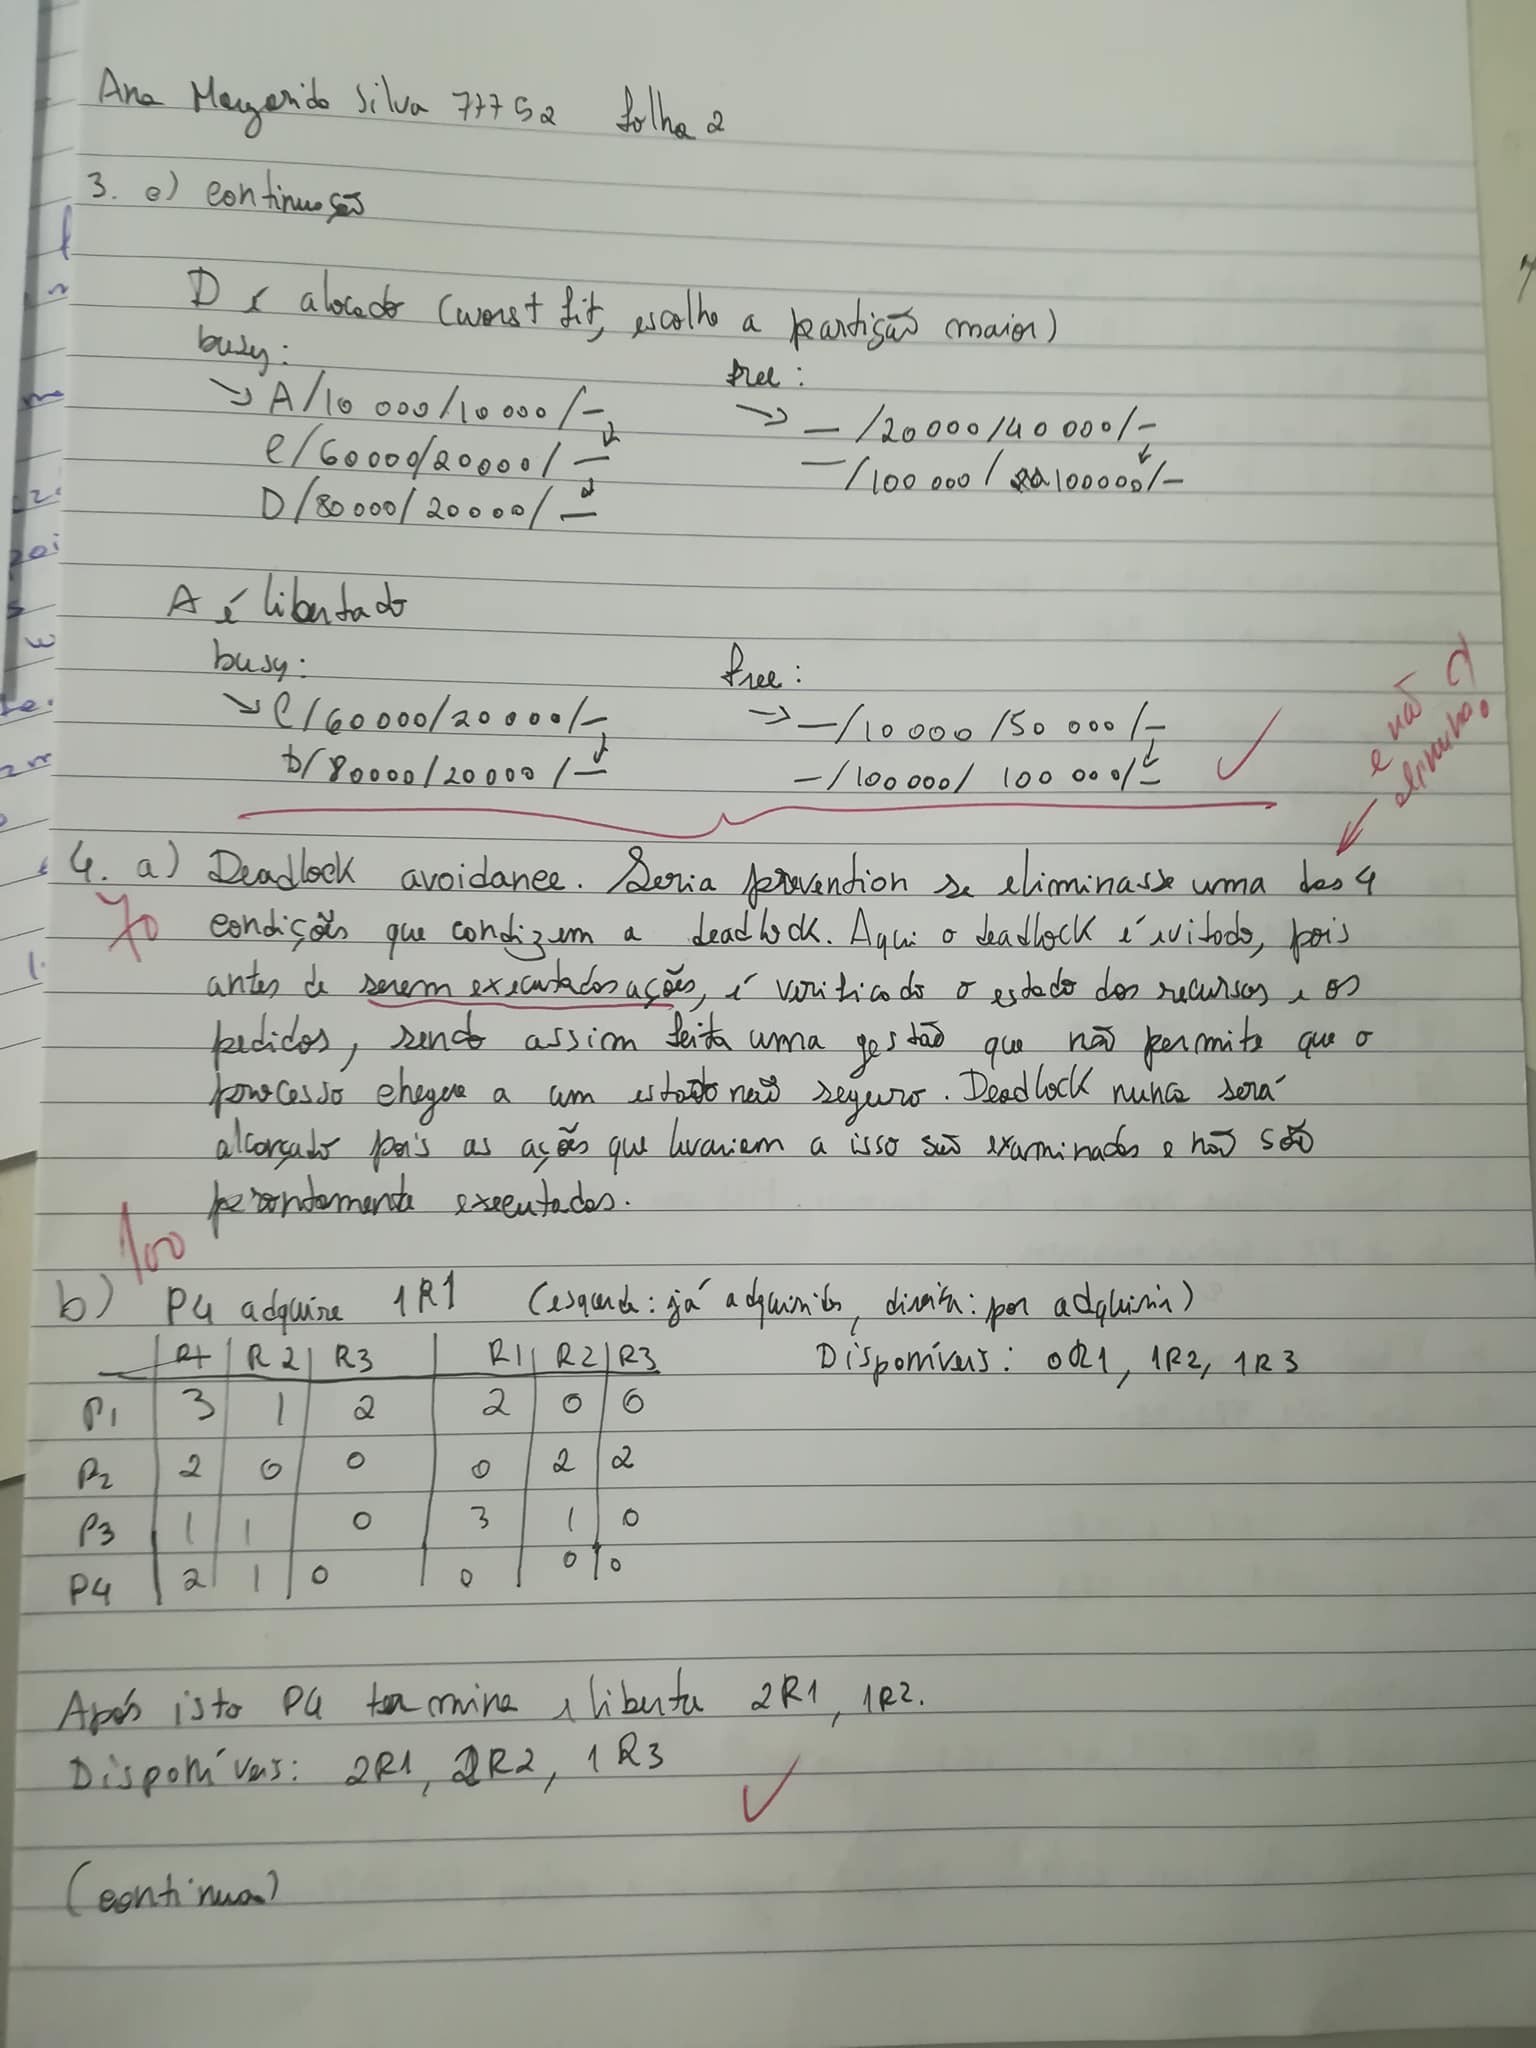 Ana Margarida Silva 77752 folha 2
3. c) continuação
D é alocado (worst fit, escolhe a partição maior)
busy: free:
→ A/10 000/10 000/– → – /20000/40 000/–
C/60000/20000/– – /100 000/ 100000/–
D/80000/20000/–
A é libertado
busy: free:
→ C/60000/20000/– → –/10000/50 000/–
D/80000/20000/– –/100000/ 100 000/–
e não
elimina?
4. a) Deadlock avoidance. Seria prevention se eliminasse uma das 4
70
condições que condizem a deadlock. Aqui o deadlock é evitado, pois
antes de serem executadas ações, é verificado o estado dos recursos e os
pedidos, sendo assim feita uma gestão que não permite que o
processo chegue a um estado não seguro. Deadlock nunca será
alcançado pois as ações que levariam a isso são examinadas e não são
executadas.
100
b) P4 adquire 1R1 (esquerda: já adquiridos, direita: por adquirir)
R1 R2 R3 R1 R2 R3 Disponíveis: 0R1, 1R2, 1R3
P1 3 1 2 2 0 0
P2 2 0 0 0 2 2
P3 1 1 0 3 1 0
P4 2 1 0 0 0 0
Após isto P4 termina e liberta 2R1, 1R2.
Disponíveis: 2R1, 2R2, 1R3
(continua)